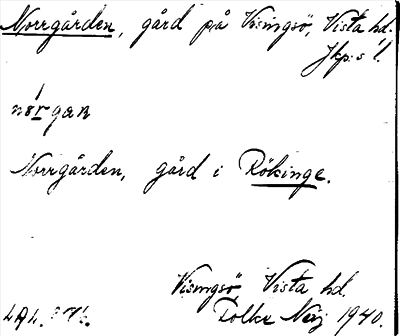 Norrgården, gård på Visingsö, Vista hd.
Jkp:s l.
Norrgården, gård i Rökinge.
Visingsö Vista hd.
Folke 1940.